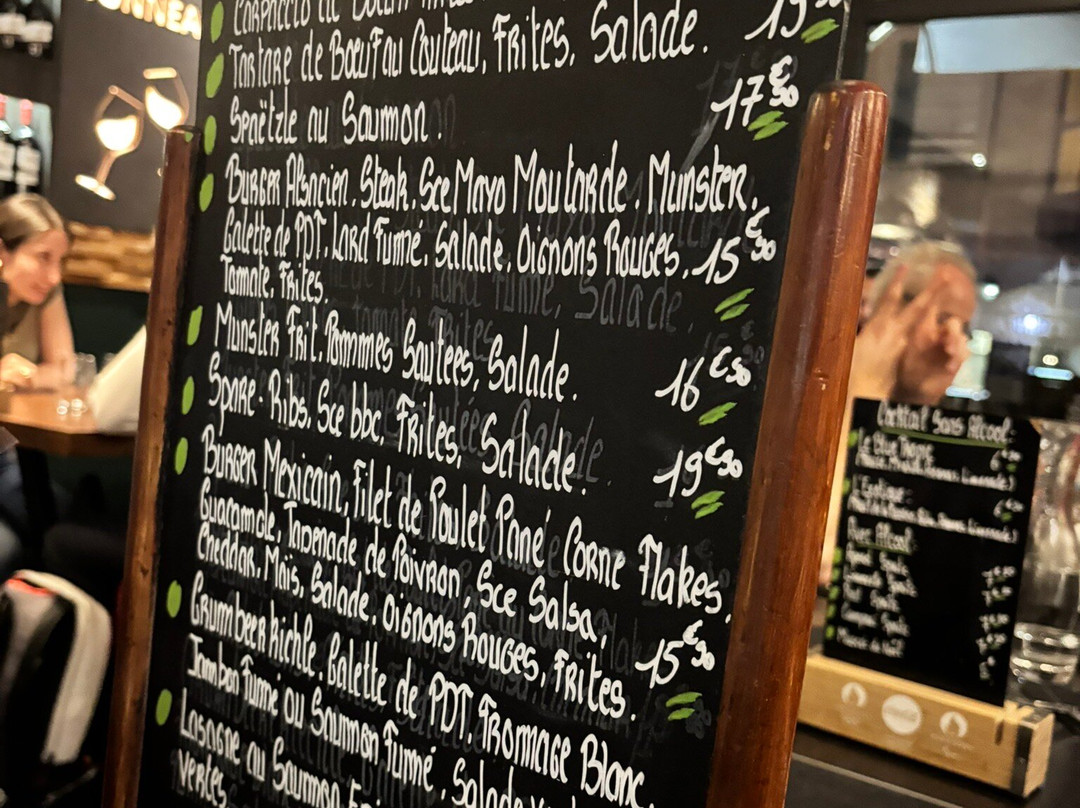 Carpaccio de
Tartare de Bœuf au Couteau, Frites, Salade. 19
Spaëtzle au Saumon. 17€50
Burger Alsacien, Steak, Sce Mayo Moutarde, Munster,
Galette de PDT, Lard Fumé, Salade, Oignons Rouges, 15€50
Tomate, Frites.
Munster Frit, Pommmes Sautees, Salade. 16€50
Spare-Ribs, Sce bbc, Frites, Salade. 19€50
Burger Mexicain, Filet de Poulet Pané Corne Flakes,
Guacamole, Tapenade de Poivron, Sce Salsa,
Cheddar, Maïs, Salade, Oignons Rouges, Frites. 15€50
Grumbeerkichle, Galette de PDT, Frommage Blanc,
Jambon Fumé ou Saumon Fumé, Salade
Lasagne au Saumon
vertes
Cocktail Sans Alcool:
Avec Alcool: